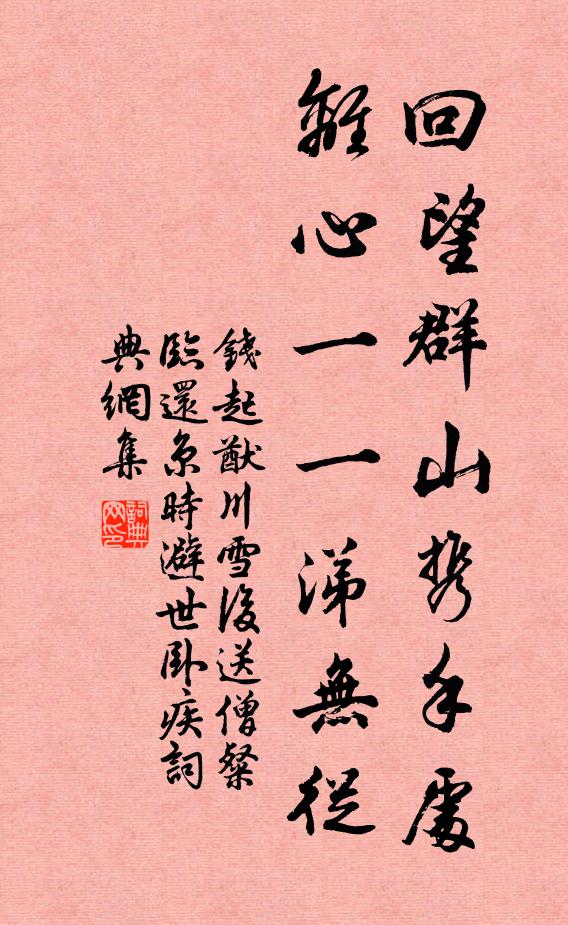 回望群山携手處
離心一一涕無從
錢起猷川雪後送僧粲
臨還京時避世卧疾詞
典網集
詞典網印